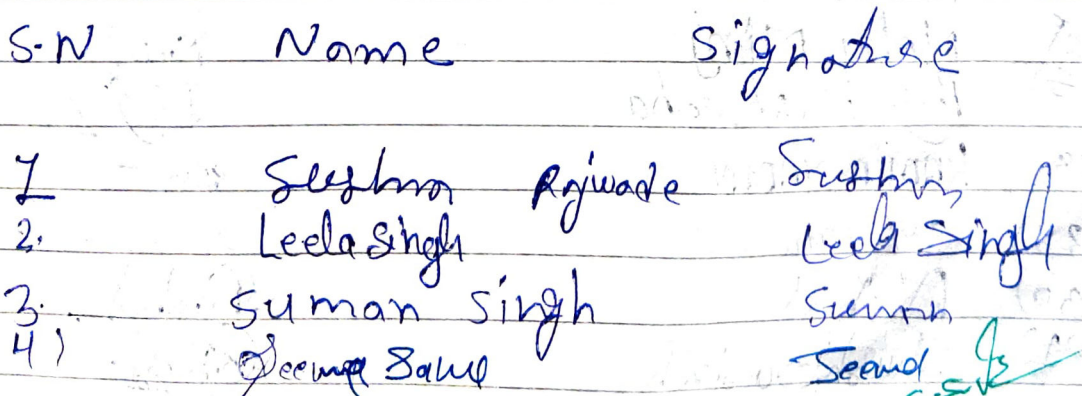 S.N Name Signature
1 Sushma Rajwade Sushma
2. Leela Singh Leela Singh
3. Suman Singh Suman
4) Seema Seema